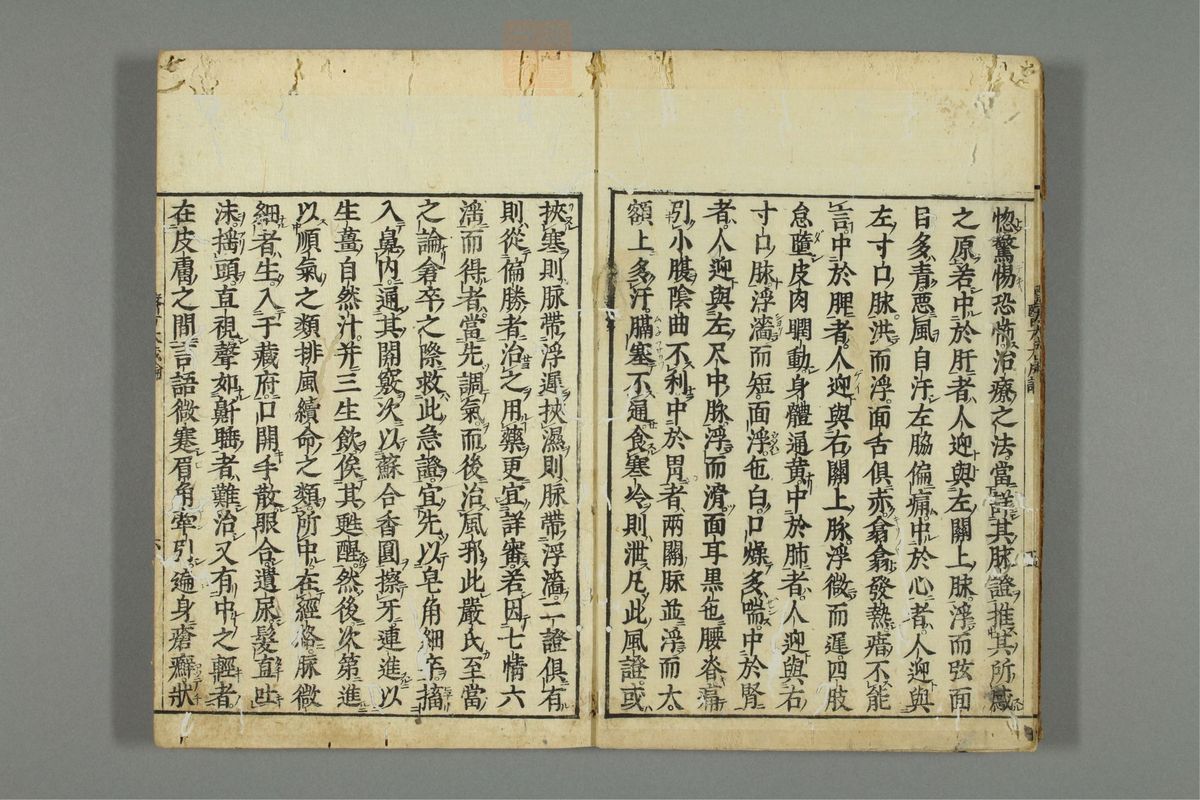 惚驚惕恐怖治療之法當詳其脉證推其所感
之原若中於肝者人迎與左關上脉浮而弦面
目多青悪風自汗左脇偏痛中於心者人迎與
左寸口脉洪而浮面舌俱赤翕翕發熱瘖不能
言中於脾者人迎與右關上脉浮微而遲四肢
怠墮皮肉瞤動身體通黄中於肺者人迎與右
寸口脉浮濇而短面浮色白口燥多喘中於腎
者人迎與左尺中脉浮而滑面耳黒色腰脊痛
引小腹隂曲不利中於胃者兩關脉並浮而大
額上多汗膈塞不通食寒冷則泄凡此風證或
挾寒則脉帶浮遲挾濕則脉帶浮濇二證俱有
則從偏勝者治之用藥更宜詳審若因七情六
滛而得者當先調氣而後治風邪此嚴氏至當
之論倉卒之際救此急證宜先以皂角細辛搐
入鼻内通其關竅次以蘇合香圓擦牙連進以
生薑自然汁并三生飲俟其甦醒然後次第進
以順氣之類排風續命之類所中在經絡脉微
細者生入于藏府口開手散眼合遺尿髮直吐
沫揺頭直視聲如鼾𪖙者難治又有中之輕者
在皮膚之間言語微蹇眉角牽引遍身瘡癬狀